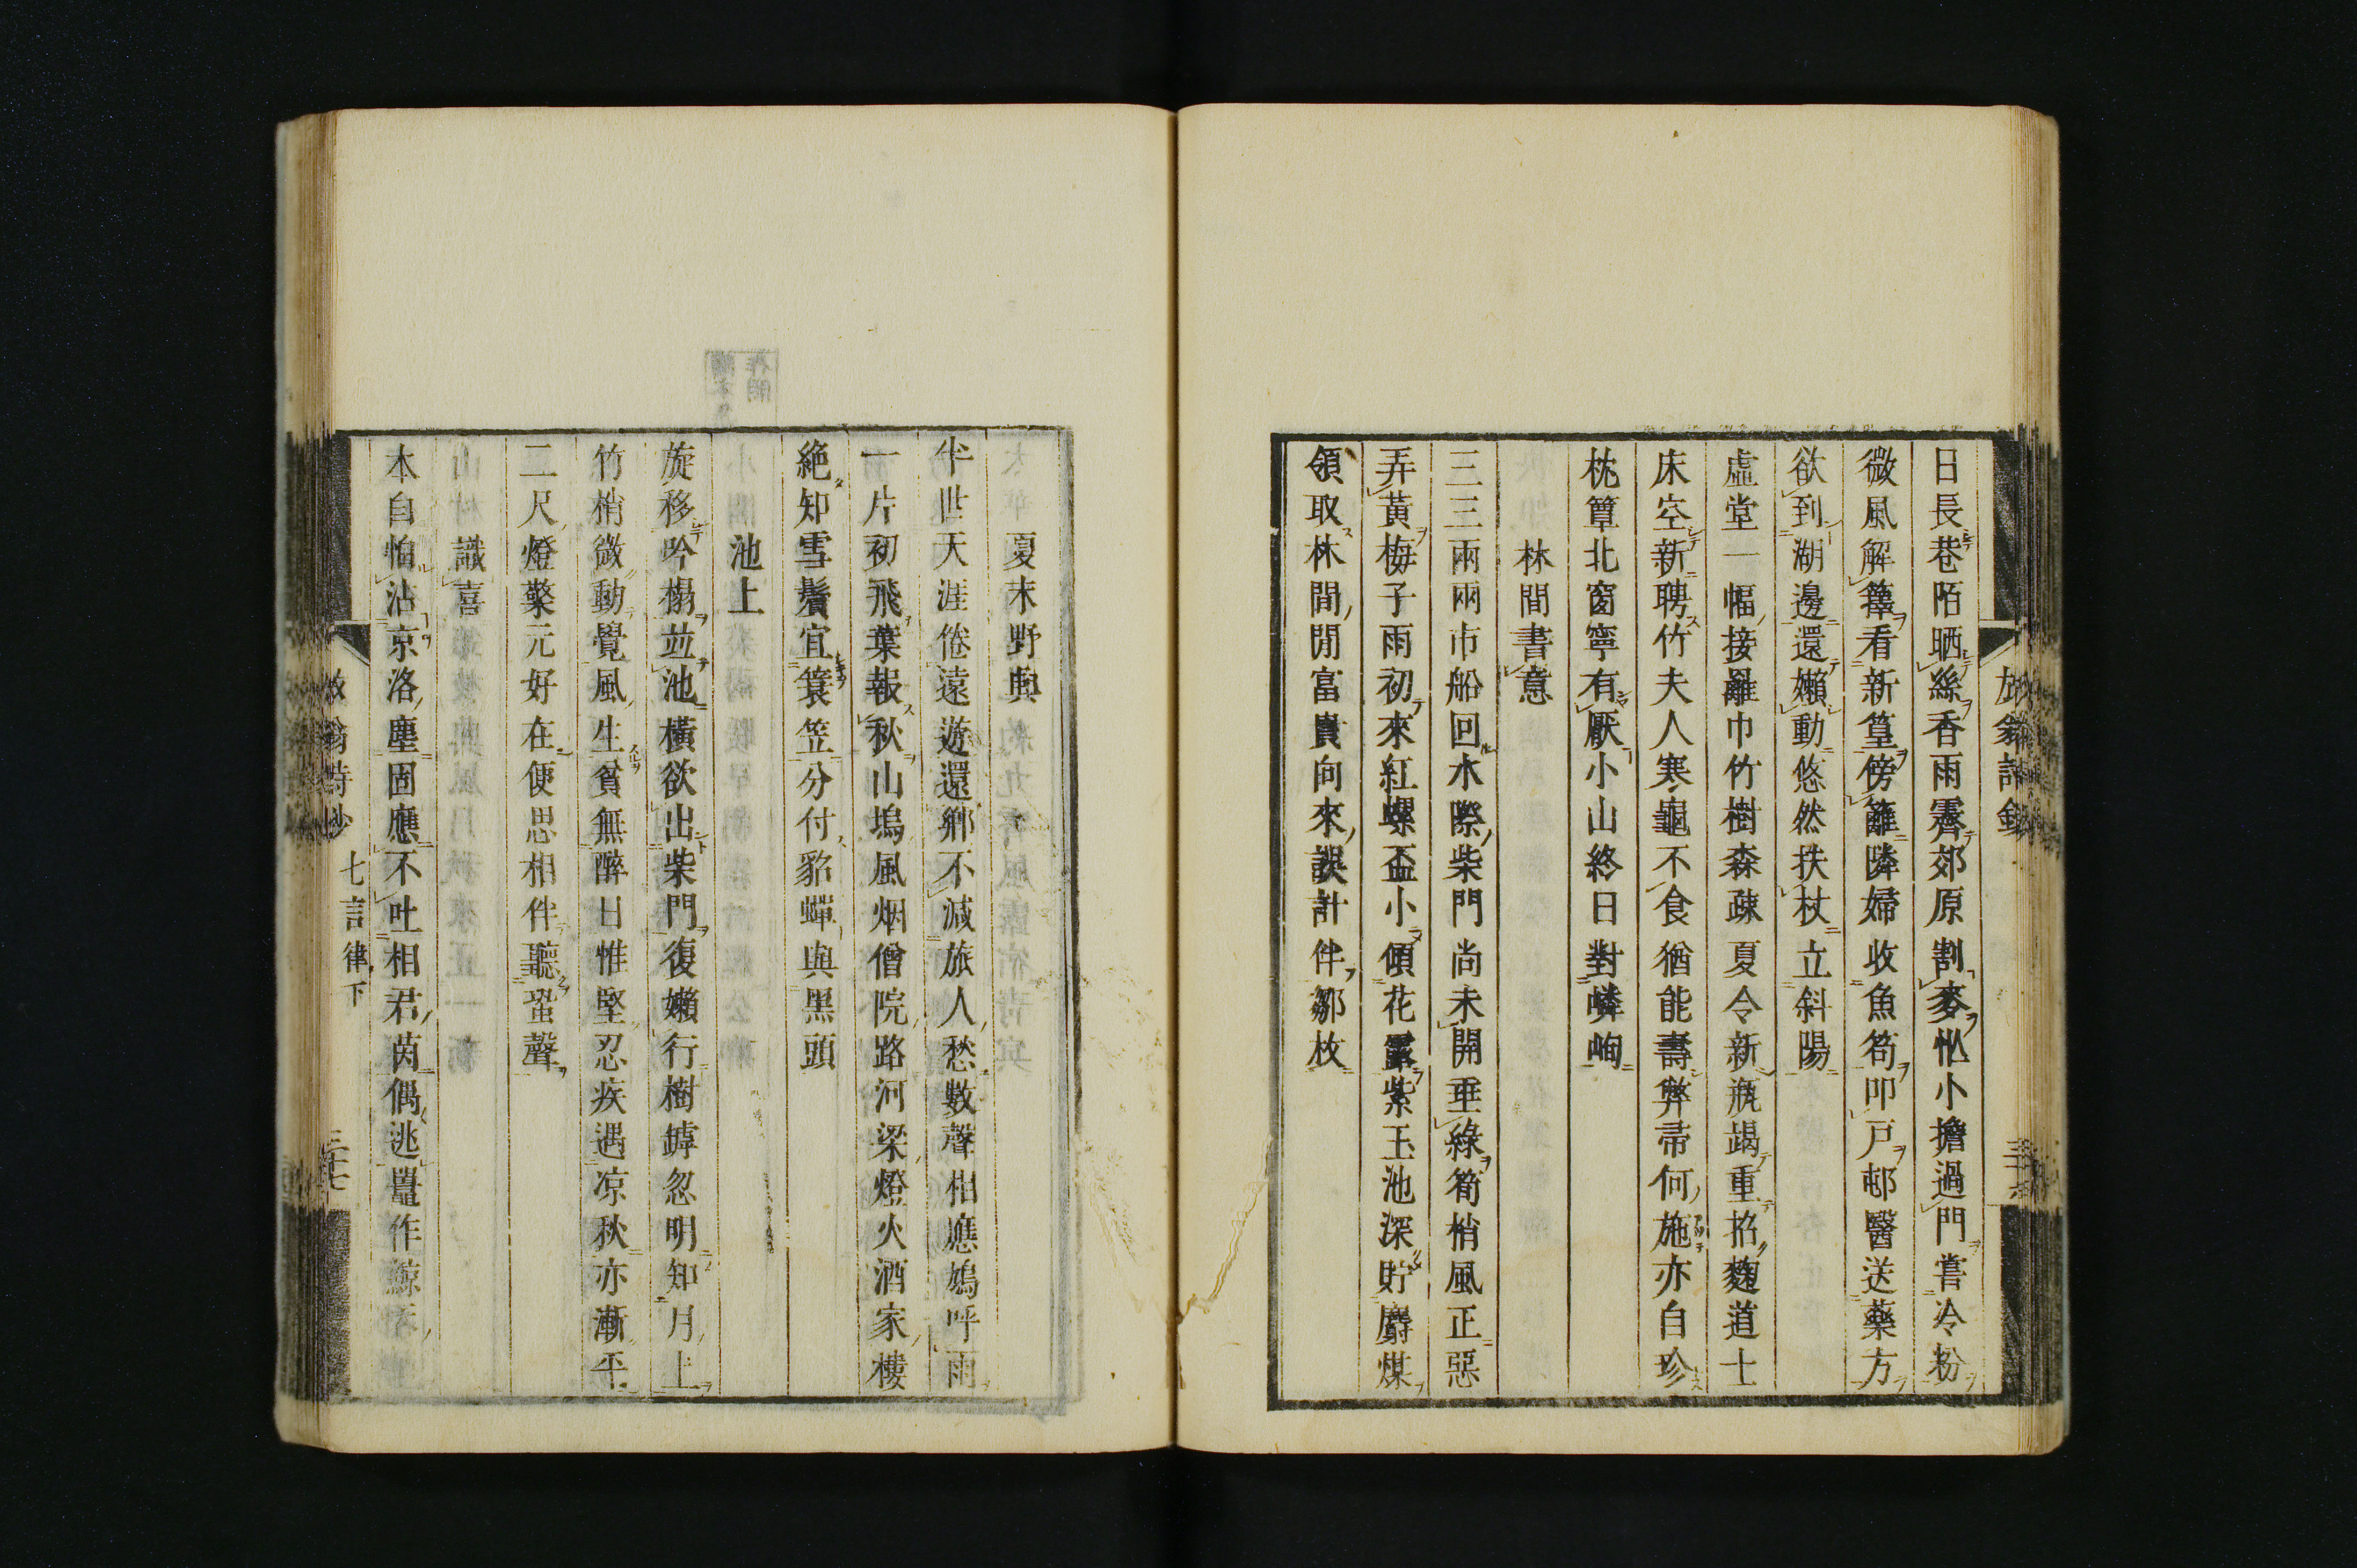 日長巷陌晒絲香雨霽郊原割麥忙小擔過門嘗冷粉
微風解籜看新篁傍籬隣婦收魚笱叩戸邨醫送藥方
欲到湖邊還嬾動悠然扶杖立斜陽
虛堂一幅接䍦巾竹樹森疎夏令新瓶竭重招麴道士
床空新聘竹夫人寒龜不食猶能壽弊帚何施亦自珍
枕簟北窗寧有厭小山終日對嶙峋
林間書意
三三兩兩市船回水際柴門尚未開垂綠筍梢風正惡
弄黃梅子雨初來紅螺盃小傾花露紫玉池深貯麝煤
領取林間閒富貴向來誤計伴鄒枚
夏末野興
半世天涯倦遠遊還鄉不減旅人愁數聲相應鳩呼雨
一片初飛葉報秋山塢風烟僧院路河梁燈火酒家樓
絕知雪鬢宜簑笠分付貂蟬與黑頭
池上
旋移吟榻並池橫欲出柴門復嬾行樹罅忽明知月上
竹梢微動覺風生貧無醉日惟堅忍疾遇凉秋亦漸平
二尺燈檠元好在便思相伴聽蛩聲
識喜
本自怕沾京洛塵固應不吐相君茵偶逃鼉作鯨
放翁詩鈔 七言律下 三十七